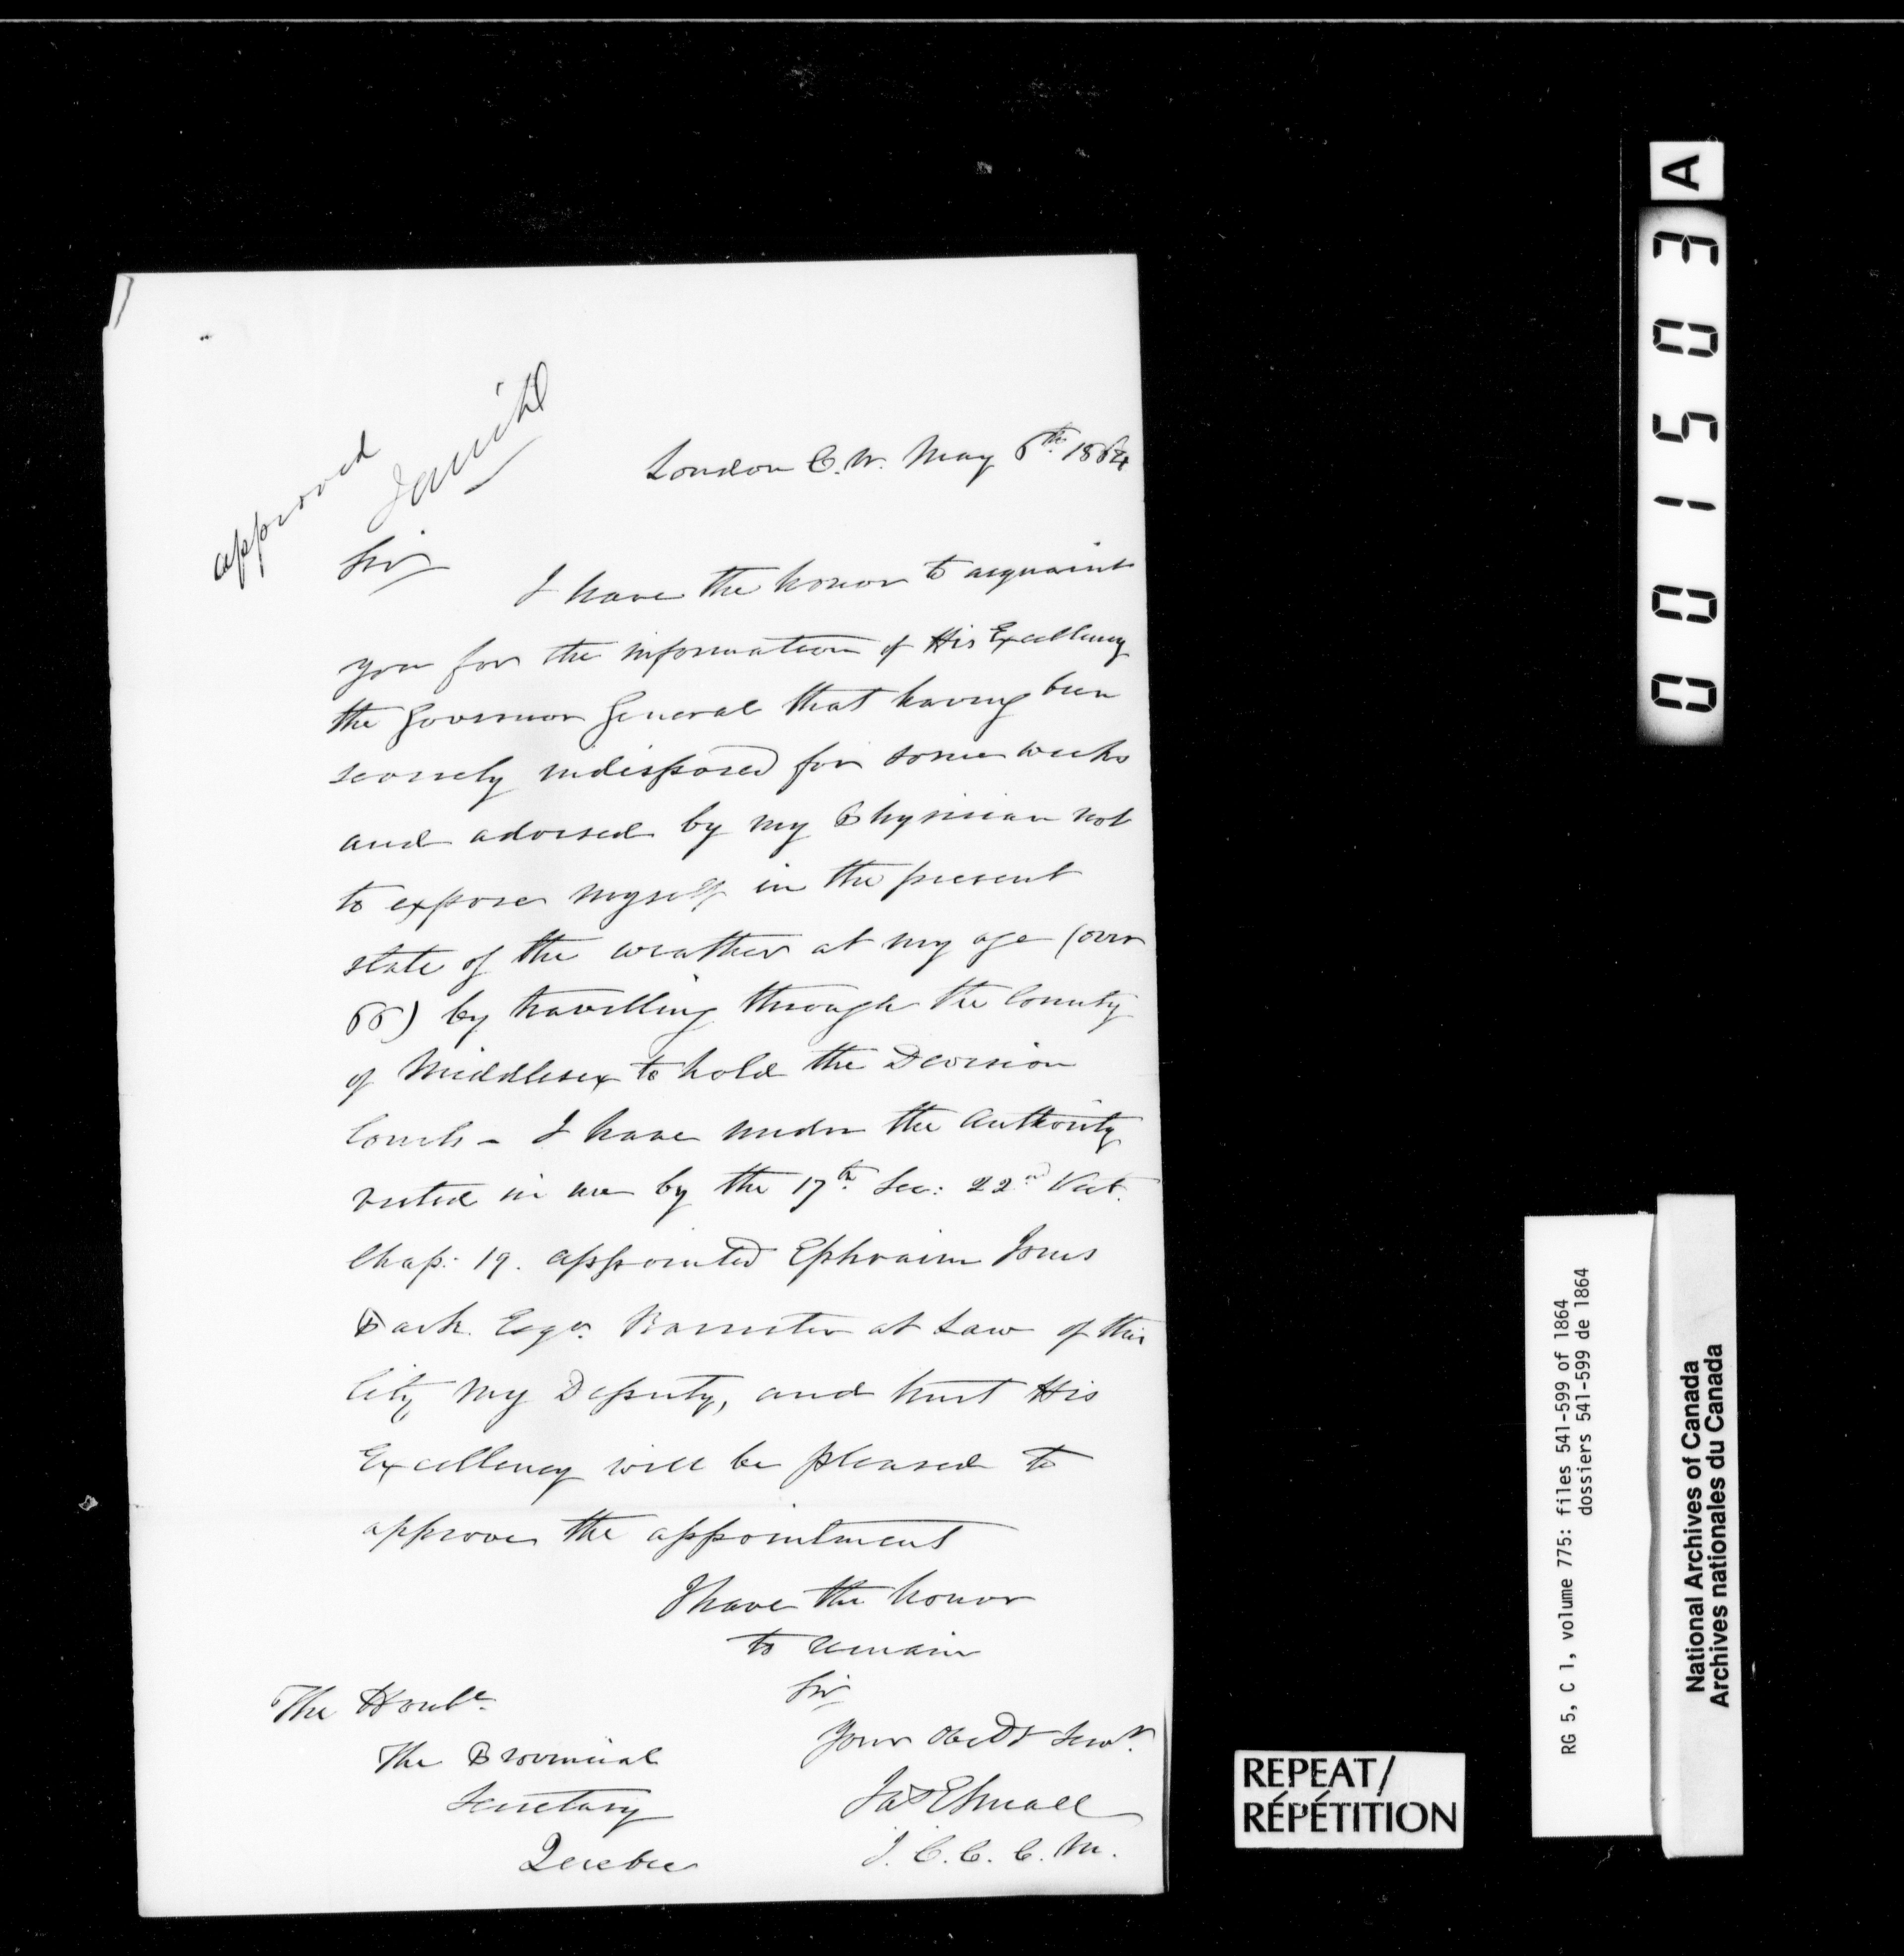 approved
London C.W. May 6th 1864
Sir
I have the honor to acquaint
you for the information of His Excellency
the Governor General that having been
severely indisposed for some weeks
and advised by my Physician not
to expose myself in the present
state of the weather at my age (over
66) by travelling through the County
of Middlesex to hold the Division
Courts - I have under the Authority
vested in me by the 17th Sec: 22nd Vict.
Chap: 19. appointed Ephraim Jones
Park Esqr. Barrister at Law of this
City my Deputy, and trust His
Excellency will be pleased to
approve the appointment
I have the honor
to remain
Sir
Your Obedt Servt.
Jas E Small
J. C. C. C. M.
The Honble.
The Provincial
Secretary
Quebec
A
001503
RG 5, C 1, volume 775: files 541-599 of 1864
dossiers 541-599 de 1864
National Archives of Canada
Archives nationales du Canada
REPEAT/
RÉPÉTITION